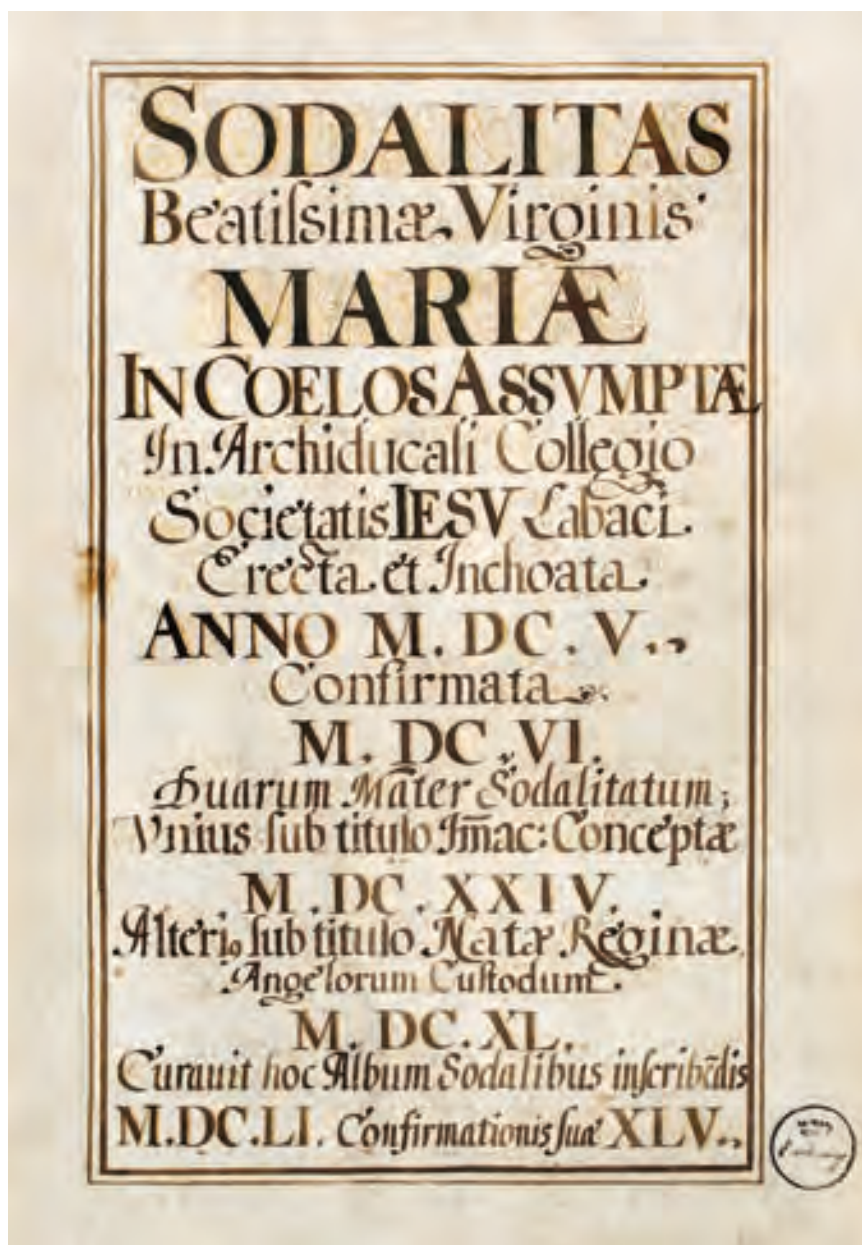 SODALITAS
Beatiſsimæ Virginis
MARIÆ
IN COELOS ASSVMPTÆ
In Archiducali Collegio
Societatis IESV Labaci.
Erecta et Inchoata.
ANNO M. DC. V.
Confirmata
M. DC. VI.
Duarum Māter Sodalitatum;
Vnius ſub titulo Im̄ac: Conceptæ
M. DC. XXIV.
Alterių ſub titulo Natæ Reginæ
Angelorum Cuſtodum.
M. DC. XL.
Curauit hoc Album Sodalibus inſcribēdis
M.DC.LI. Confirmationis ſuæ XLV.